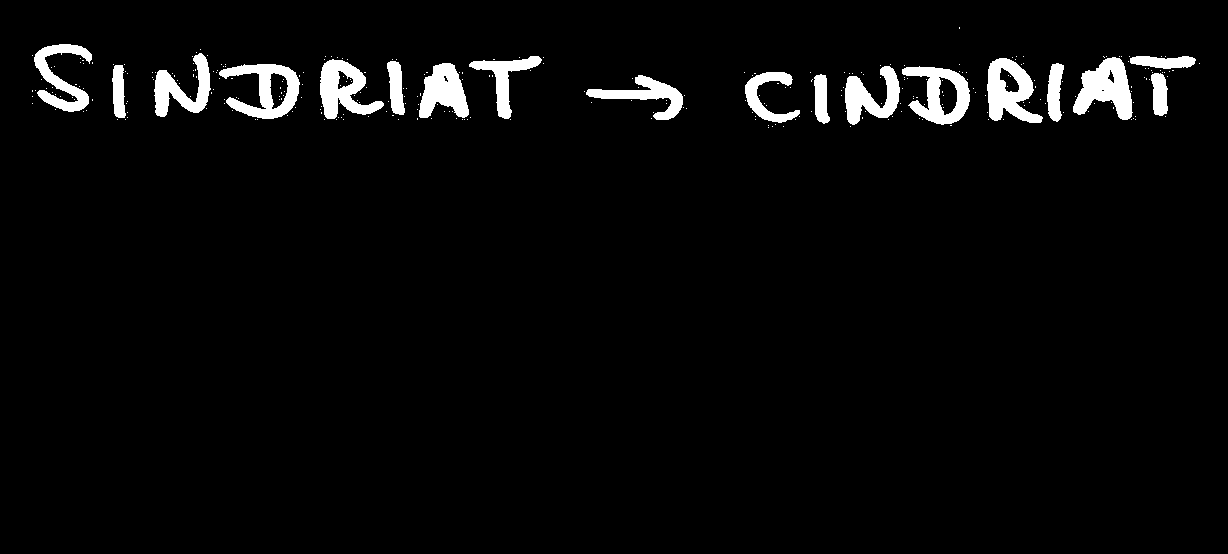 SINDRIAT → CINDRIAT